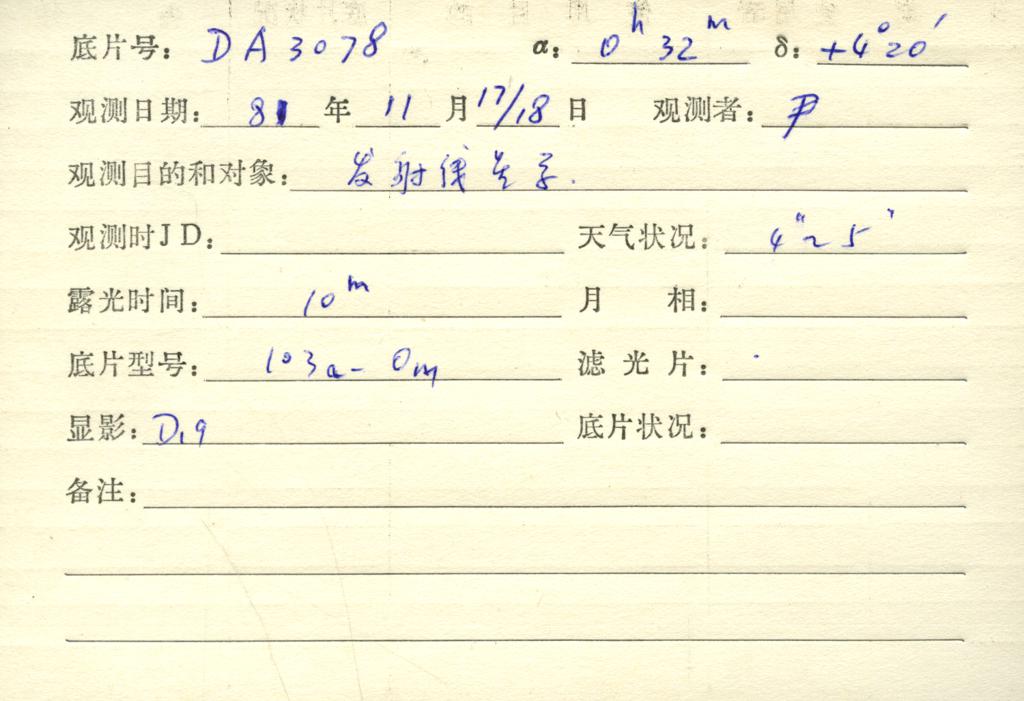 底片号: DA3078 α: 0ʰ 32ᵐ δ: +4°20′
观测日期: 81 年 11 月 17/18 日 观测者: 尹
观测目的和对象: 发射线类星.
观测时JD: 天气状况: 4"~5"
露光时间: 10ᵐ 月 相:
底片型号: 103a-O 滤 光 片:
显影: D19 底片状况:
备注: